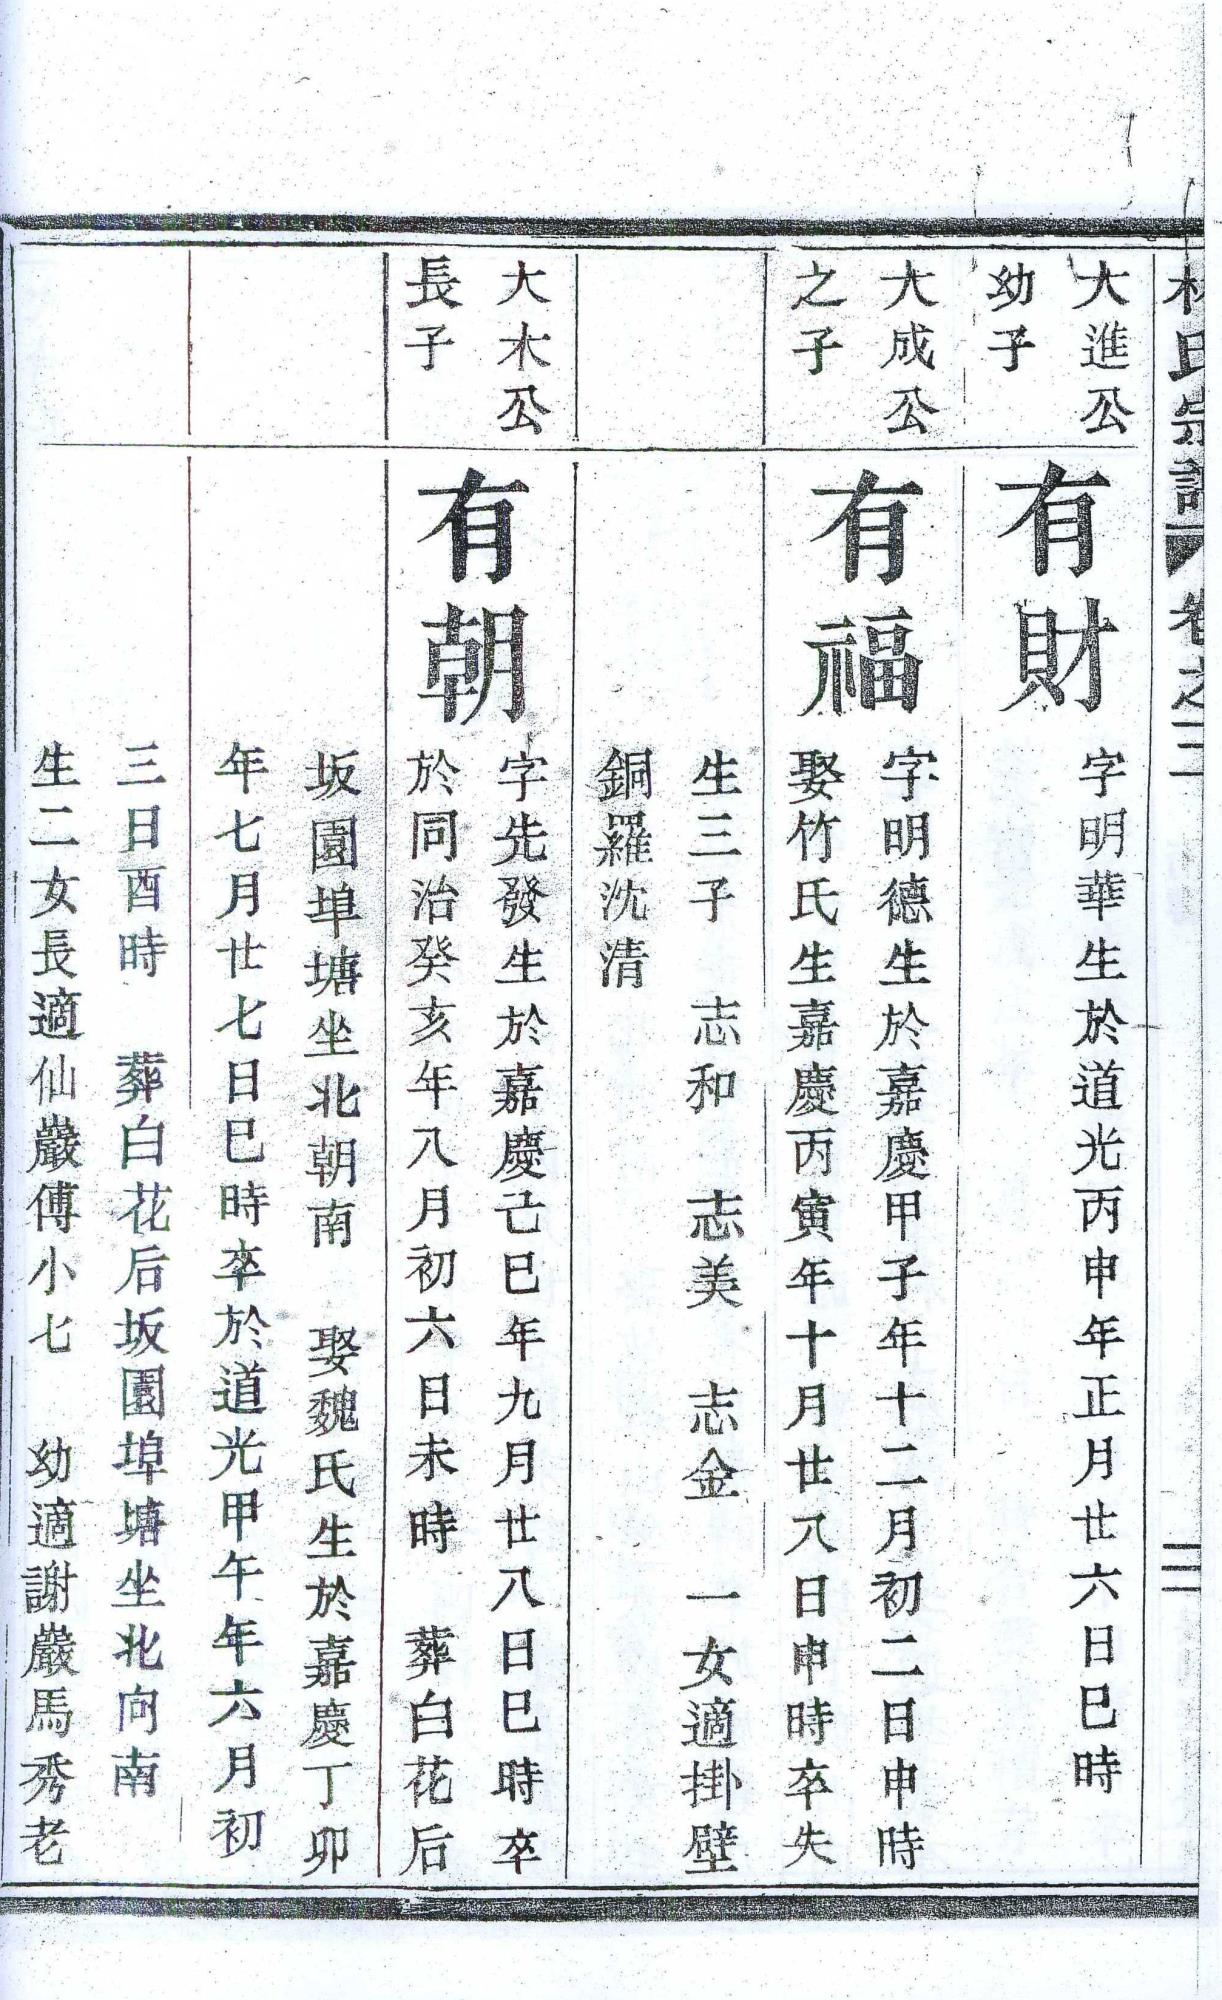 林氏宗譜 卷之二
二
大進公
幼子
有財
字明華生於道光丙申年正月廿六日巳時
大成公
之子
有福
字明德生於嘉慶甲子年十二月初二日申時
娶竹氏生嘉慶丙寅年十月廿八日申時卒失
生三子 志和 志美 志金 一女適掛壁
銅羅沈清
大木公
長子
有朝
字先發生於嘉慶己巳年九月廿八日巳時卒
於同治癸亥年八月初六日未時 葬白花后
坂園埠塘坐北朝南 娶魏氏生於嘉慶丁卯
年七月廿七日巳時卒於道光甲午年六月初
三日酉時 葬白花后坂園埠塘坐北向南
生二女長適仙嚴傅小七 幼適謝嚴馬秀老